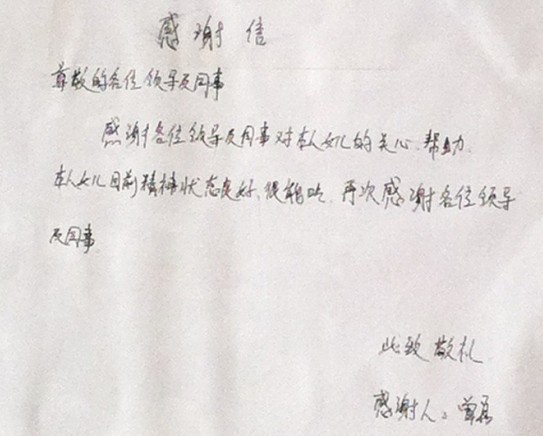 感谢信
尊敬的各位领导及同事
感谢各位领导及同事对本人女儿的关心、帮助.
本人女儿目前精神状态良好、很能吃、再次感谢各位领导
及同事.
此致敬礼
感谢人：曾磊